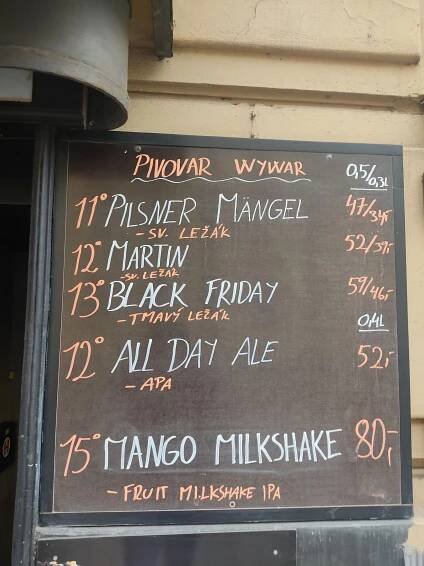 PIVOVAR WYWAR 0,5/0,3L
11° PILSNER MÄNGEL 47/34,-
- SV. LEŽÁK
12° MARTIN 52/39,-
- SV. LEŽÁK
13° BLACK FRIDAY 59/46,-
- TMAVÝ LEŽÁK
0,4L
12° ALL DAY ALE 52,-
- APA
15° MANGO MILKSHAKE 80,-
- FRUIT MILKSHAKE IPA